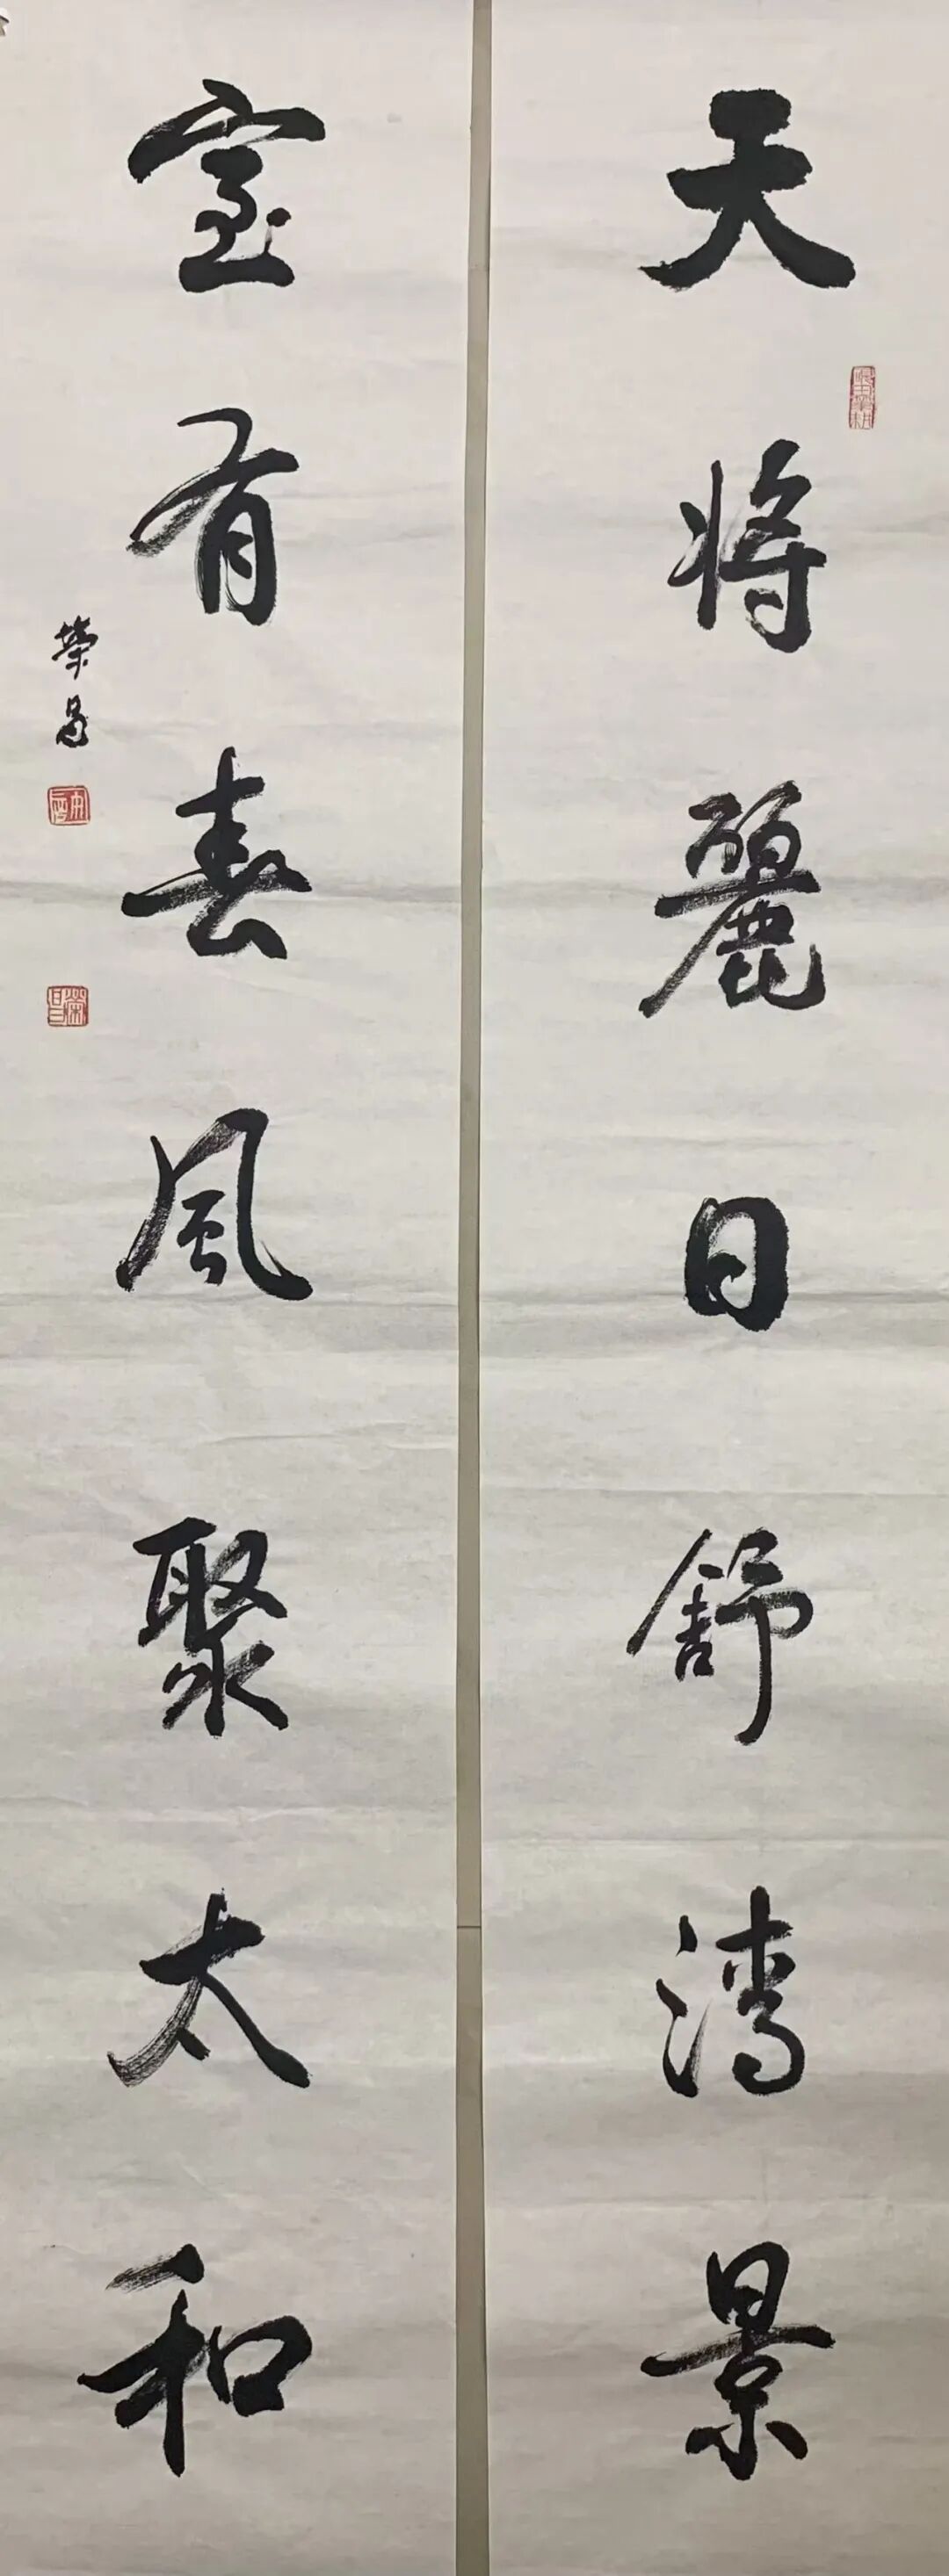 天将麗日舒清景
室有春風聚太和
榮昌
榮昌